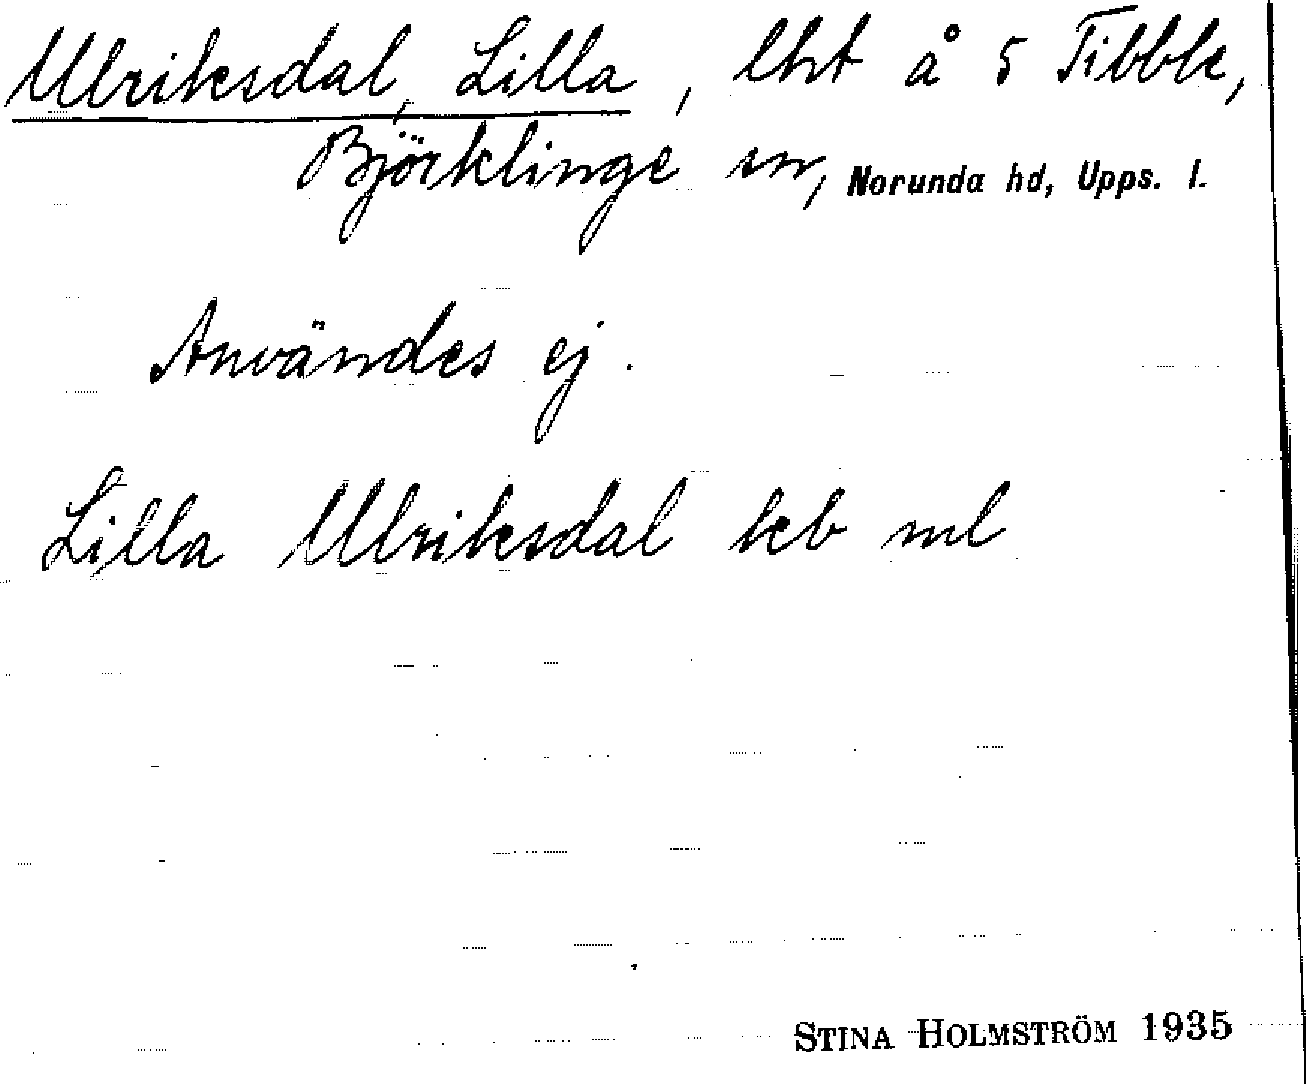 Ulriksdal, Lilla, lht å 5 Tibble,
Björklinge sn, Norunda hd, Upps. l.
Användes ej.
Lilla Ulriksdal keb ml
STINA HOLMSTRÖM 1935